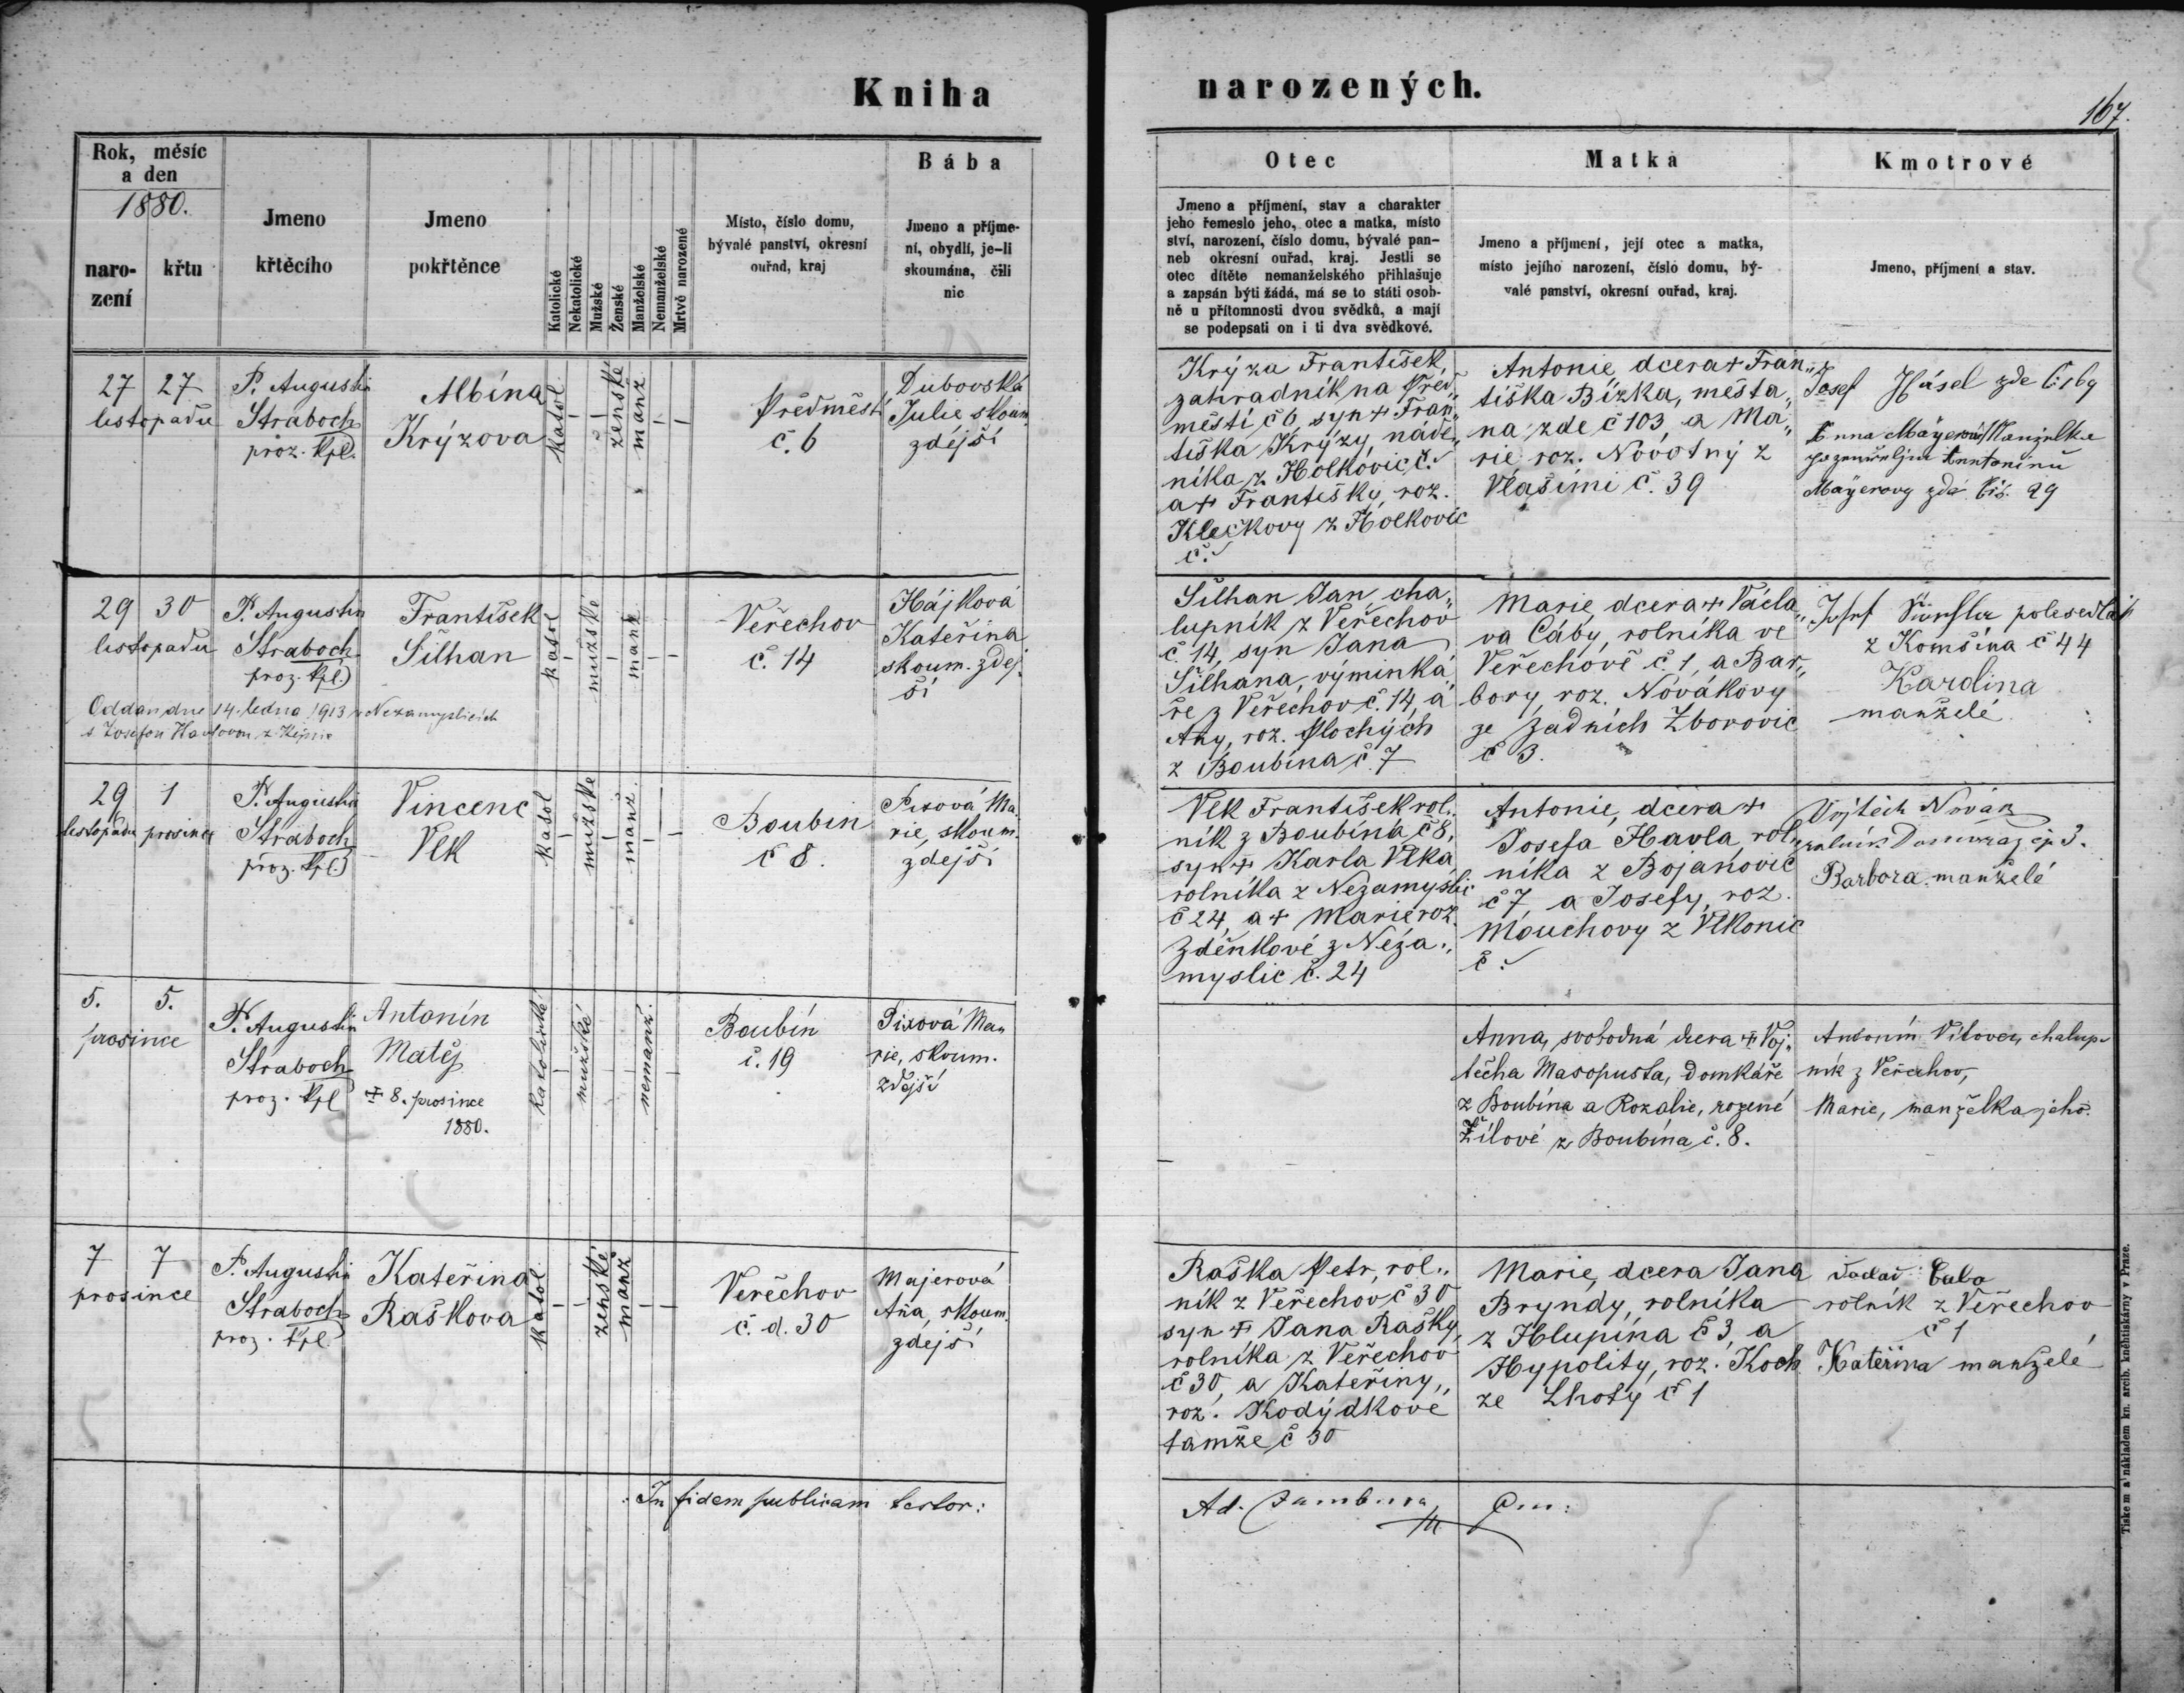 Kniha
narozených.
167.
Rok, měsíc
a den
1880.
naro-
zení
křtu
Jmeno
křtěcího
Jmeno
pokřtěnce
Katolické
Nekatolické
Mužské
Ženské
Manželské
Nemanželské
Mrtvě narozené
Místo, číslo domu,
bývalé panství, okresní
ouřad, kraj
Bába
Jmeno a příjme-
ní, obydlí, je-li
skoumána, čili
nic
Otec
Jmeno a příjmení, stav a charakter
jeho řemeslo jeho, otec a matka, místo
ství, narození, číslo domu, bývalé pan-
neb okresní ouřad, kraj. Jestli se
otec dítěte nemanželského přihlašuje
a zapsán býti žádá, má se to státi osob-
ně u přítomnosti dvou svědků, a mají
se podepsati on i ti dva svědkové.
Matka
Jmeno a příjmení, její otec a matka,
místo jejího narození, číslo domu, bý-
valé panství, okresní ouřad, kraj.
Kmotrové
Jmeno, příjmení a stav.
27 27
listopadu
P. Augustin
Straboch
proz. kpl.
Albína
Krýzova
katol.
ženské
manž.
Předměstí
č. 6
Dubovská
Julie skoum.
zdejší
Krýza František,
zahradník na Před„
městí č 6, syn + Fran„
tiška Krýzy, náde„
níka z Holkovic č.
a + Františky, roz.
Klečkovy z Holkovic
č.
Antonie, dcera + Fran„
tiška Bízka, mešťa„
na zde č 103, a Ma„
rie roz. Novotný z
Vlašimi č. 39
Josef Hásel zde
Anna Mayerová Manželka
po Antonínu
Mayerovy zde 99
29 30
listopadu
P. Augustin
Straboch
proz. kpl.
František
Šilhan
katol
mužské
manž
Veřechov
č. 14
Hájková
Kateřina
skoum. zdej„
ší
Oddán dne 14. ledna 1913 v Nezamyslicích
s Josefou Havlovou z
Šilhan Jan cha„
lupník z Veřechov
č. 14, syn Jana
Šilhana, výminká
ře z Veřechov č. 14, a
Any, roz. Plochých
z Boubína č. 7
Marie dcera + Václa„
va Cáby, rolníka ve
Veřechově č. 1, a Bar„
bory, roz. Novákovy
ze Zadních Zborovic
č 3.
Josef polesedlák
z Komšína č 44
Karolina
manželé
29 1
listopadu prosince
P. Augustin
Straboch
proz. kpl.
Vincenc
Vlk
katol
mužské
manž.
Boubín
č 8.
Pixová Ma„
rie, skoum.
zdejší
Vlk František rol„
ník z Boubína č 8,
syn + Karla Vlka
rolníka z Nezamyslic
č 24, a + Marie roz.
Zdeňkové z Neza„
myslic č. 24
Antonie, dcera +
Josefa Havla, rol„
níka z Bojanovic
č 7, a Josefy, roz.
Mouchovy z Vlkonic
č.
Vojtěch Novák
rolník Domoraz čp 3.
Barbora manželé
5. 5.
prosince
P. Augustin
Straboch
proz. kpl
Antonín
Matěj
+ 8. prosince
1880.
katolické
mužské
nemanž.
Boubín
č. 19
Pixová Ma„
rie, skoum.
zdejší
Anna, svobodná dcera + Voj„
těcha Masopusta, domkáře
z Boubína a Rozalie, rozené
Žílové z Boubína č. 8.
Antonín Vítovec, chalup„
ník z Veřechov,
Marie, manželka jeho.
7 7
prosince
P. Augustin
Straboch
proz. kpl.
Kateřina
Raškova
katol.
ženské
manž
Veřechov
č. d. 30
Majerová
Aňa, skoum.
zdejší
Raška Petr, rol„
ník z Veřechov č 30
syn + Jana Rašky,
rolníka z Veřechov
č 30, a Kateřiny,
roz. Kodýdkové
tamže č 30
Marie, dcera Jana
Bryndy, rolníka
z Hlupína č 3, a
Hypolity, roz. Koch
ze Lhoty č 1
rolník z Veřechov
č 1
Kateřina manželé
In fidem publicam testor:
Ad. Jambura
Tiskem a nákladem kn. arcib. knihtiskárny v Praze.